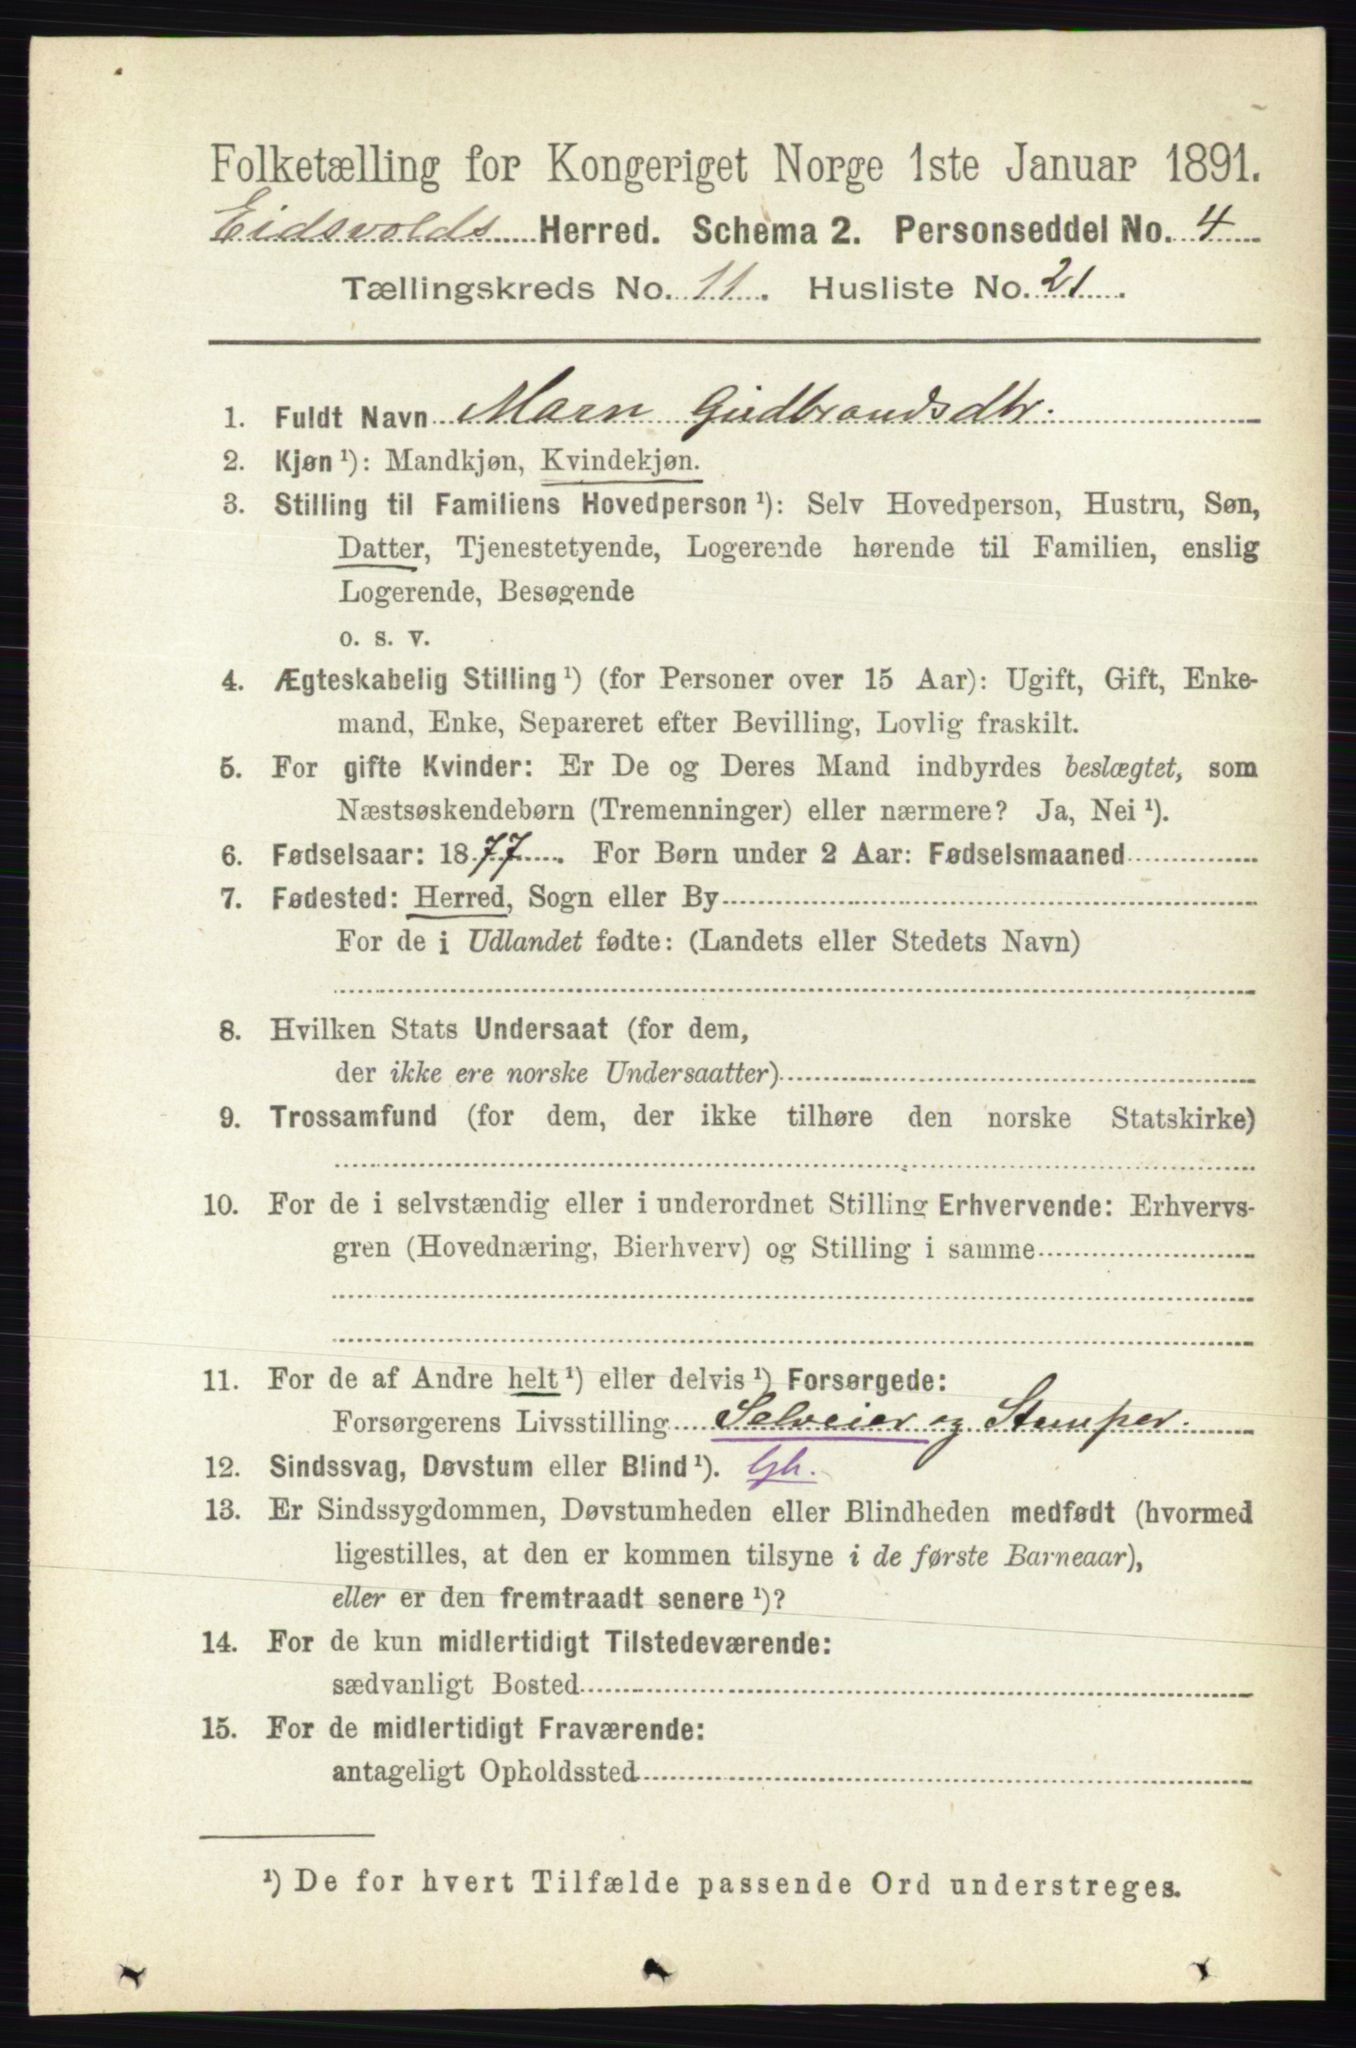 Folketælling for Kongeriget Norge 1ste Januar 1891.
Eidsvolds Herred. Schema 2. Personseddel No. 4
Tællingskreds No. 11. Husliste No. 21.
1. Fuldt Navn Maren Gudbrandsdtr.
2. Kjøn ¹): Mandkjøn, Kvindekjøn.
3. Stilling til Familiens Hovedperson ¹): Selv Hovedperson, Hustru, Søn,
Datter, Tjenestetyende, Logerende hørende til Familien, enslig
Logerende, Besøgende
o. s. v.
4. Ægteskabelig Stilling ¹) (for Personer over 15 Aar): Ugift, Gift, Enke-
mand, Enke, Separeret efter Bevilling, Lovlig fraskilt.
5. For gifte Kvinder: Er De og Deres Mand indbyrdes beslægtet, som
Næstsøskendebørn (Tremenninger) eller nærmere? Ja, Nei ¹).
6. Fødselsaar: 1877. For Børn under 2 Aar: Fødselsmaaned
7. Fødested: Herred, Sogn eller By
For de i Udlandet fødte: (Landets eller Stedets Navn)
8. Hvilken Stats Undersaat (for dem,
der ikke ere norske Undersaatter)
9. Trossamfund (for dem, der ikke tilhøre den norske Statskirke)
10. For de i selvstændig eller i underordnet Stilling Erhvervende: Erhvervs-
gren (Hovednæring, Bierhverv) og Stilling i samme
11. For de af Andre helt ¹) eller delvis ¹) Forsørgede:
Forsørgerens Livsstilling Selveier og Stumper.
12. Sindssvag, Døvstum eller Blind ¹). Gh.
13. Er Sindssygdommen, Døvstumheden eller Blindheden medfødt (hvormed
ligestilles, at den er kommen tilsyne i de første Barneaar),
eller er den fremtraadt senere ¹)?
14. For de kun midlertidigt Tilstedeværende:
sædvanligt Bosted
15. For de midlertidigt Fraværende:
antageligt Opholdssted
¹) De for hvert Tilfælde passende Ord understreges.